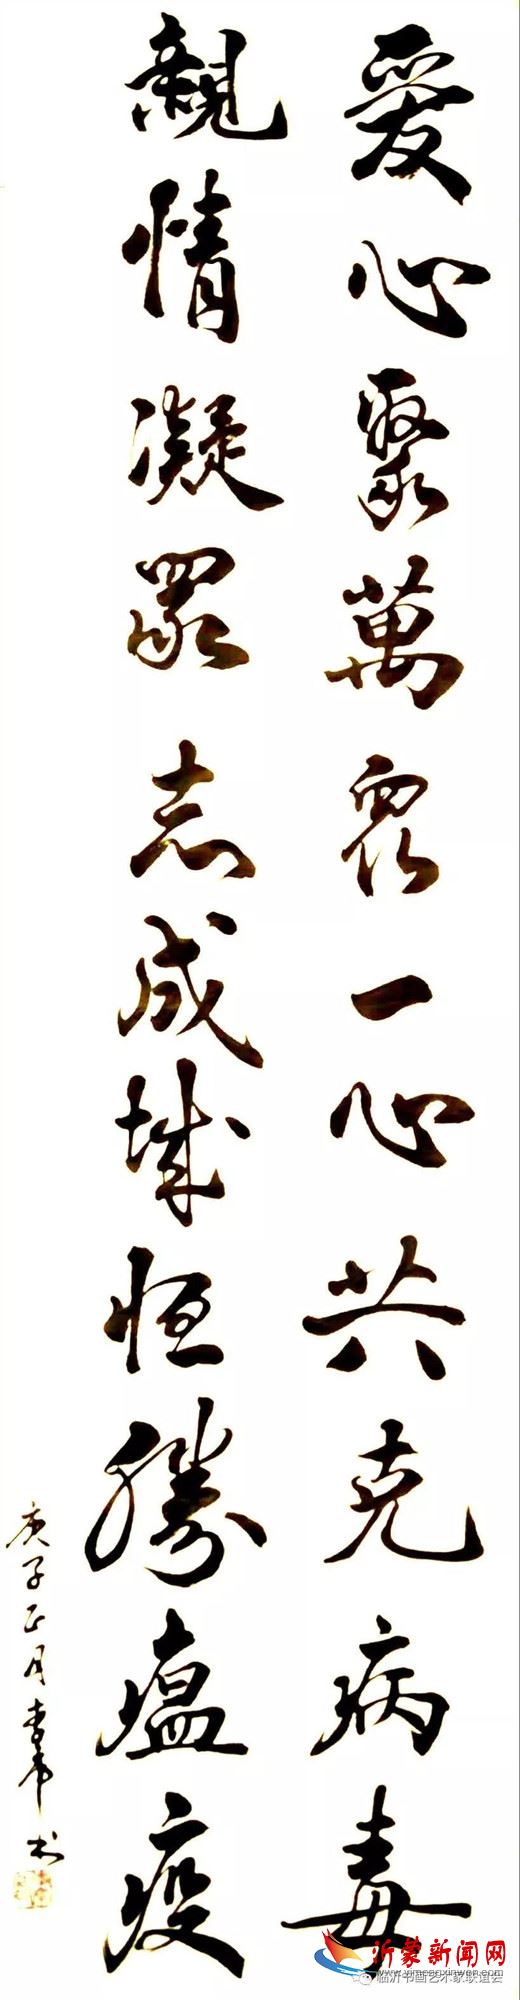 爱心聚萬眾一心共克病毒
親情凝眾志成城恒勝瘟疫
庚子正月
书
沂蒙新闻网
www.yimengxinwen.com
临沂书画艺术家联谊会